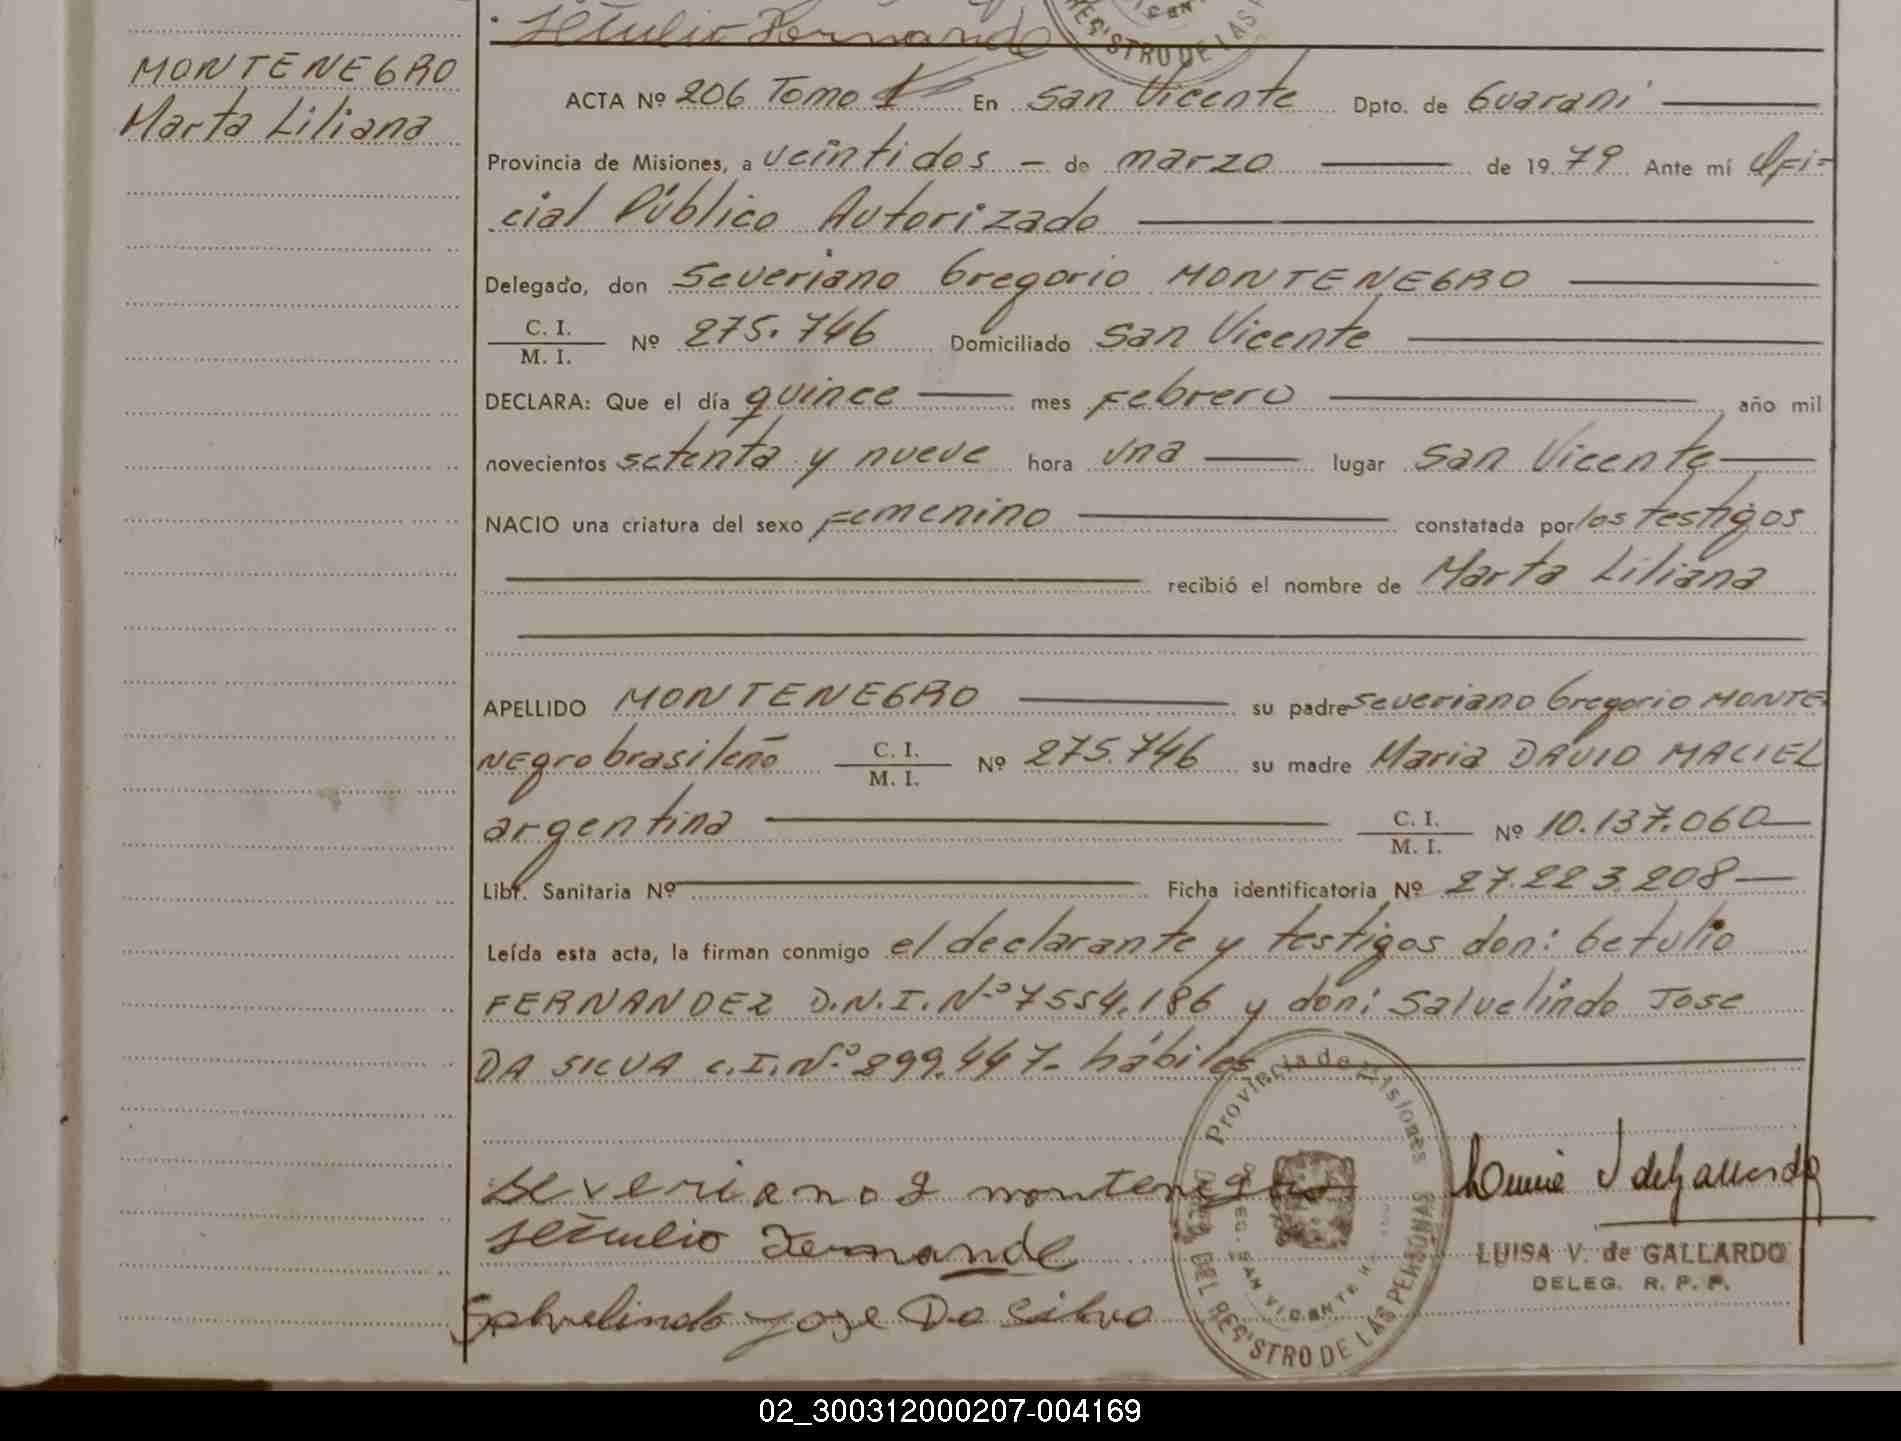 MONTENEGRO
Marta Liliana
ACTA Nº 206 Tomo 1 En San Vicente Dpto. de Guaraní
Provincia de Misiones, a veintidos - de marzo de 1979 Ante mí Ofi-
cial Público Autorizado
Delegado, don Severiano Gregorio MONTENEGRO
C. I.
M. I. Nº 275.746 Domiciliado San Vicente
DECLARA: Que el día quince mes Febrero año mil
novecientos setenta y nueve hora una lugar San Vicente
NACIO una criatura del sexo Femenino constatada por los testigos
recibió el nombre de Marta Liliana
APELLIDO MONTENEGRO su padre Severiano Gregorio MONTE
NEgro brasileño C. I.
M. I. Nº 275.746 su madre Maria DAVID MACIEL
argentina C. I.
M. I. Nº 10.137.060
Libr. Sanitaria Nº Ficha identificatoria Nº 27.223.208
Leída esta acta, la firman conmigo el declarante y testigos don: betulio
FERNANDEZ D.N.I. Nº 7554.186 y don: Salvelindo Jose
DA SILVA C.I. Nº 899.447- hábiles
severiano g montenegro
Fernande
Salvelindo Jose Da Silva
Provincia de Misiones
DEL REGISTRO DE LAS PERSONAS
SAN VICENTE
LUISA V. de GALLARDO
DELEG. R. P. P.
02_300312000207-004169